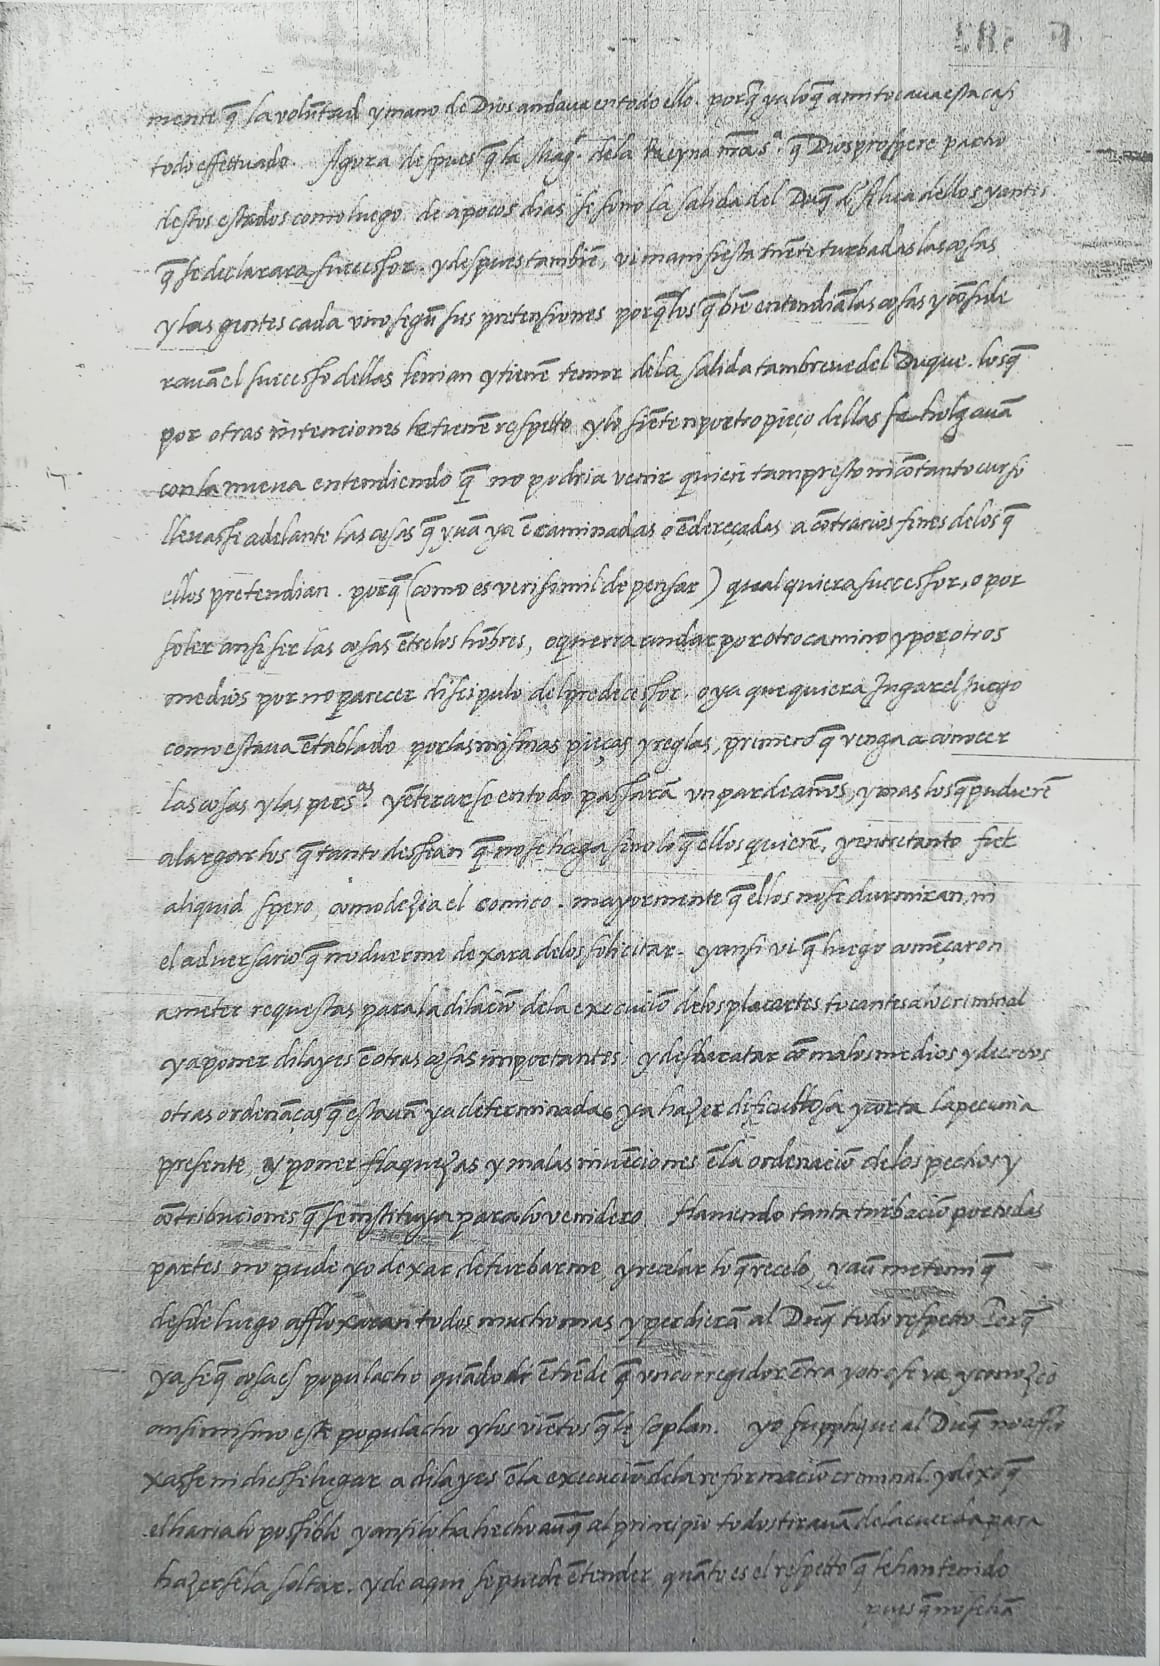 mente q̃ la volũtad y mano de Dios andaua en todo ello. porq̃ ya lo q̃ a mi tocaua esta casi
todo effettuado. Agora despues q̃ la Mag.ᵈ de la Reyna nr̃a s.ᵃ q̃ Dios prospere partio
destos estados como luego de a pocos dias se sono la salida del Duq̃ d'Alua dellos y antes
q̃ se declarara successor. y despues tambiẽ, vi manifiestamẽte turbadas las cosas
y las gentes cada vno segũ sus pretensiones porq̃ los q̃ biẽ entendiã las cosas y cõside
rauã el successo dellas tenian y tienẽ temor de la salida tam breue del Duque. los q̃
por otras intenciones le tienẽ respetto y lo siẽten por tropieço dellas se holgauã
con la nueua entendiendo q̃ no podria venir quien tam presto ni cõ tanto curso
lleuasse adelante las cosas q̃ yuã ya ẽcaminadas o ẽdereçadas a cõtrarios fines de los q̃
ellos pretendian. porq̃ (como es verisimil de pensar) qualquiera successor, o por
soler ansi ser las cosas ẽtre los hõbres, o querra andar por otro camino y por otros
medios por no parecer discipulo del predecessor. o ya que quiera jugar el juego
como estaua ẽtablado por las mismas pieças y reglas, primero q̃ venga a conocer
las cosas y las pers.ᵃˢ y ẽterarse en todo passarã vn par de años, y mas los q̃ pudierẽ
alargar los q̃ tanto dessean q̃ no se haga sino lo q̃ ellos quierẽ, y entretanto fiet
aliquid spero, como dezia el comico. mayormente q̃ ellos no se durmiran, ni
el aduersario q̃ no duerme dexara de los solicitar. y ansi vi q̃ luego comẽçaron
a meter requestas para la dilaciõ de la execuciõ de los placartes tocantes a lo criminal
y a poner dilayes ẽ otras cosas importantes. y desbaratar cõ malos medios y
otras ordenãças q̃ estauã ya determinadas y a hazer dificultosa y corta la pecunia
presente, y poner flaquezas y malas inuẽciones ẽ la ordenaciõ de los pechos y
cõtribuciones q̃ se instituya para lo venidero. Hauiendo tanta turbaciõ por todas
partes no pude yo dexar de turbarme y recelar lo q̃ recelo, y aũ me temi q̃
desde luego affloxaran todos mucho mas y perdierã al Duq̃ todo respetto Porq̃
ya se q̃ cosa es populacho quãdo ẽtiẽde q̃ vn corregidor ẽtra y otro se va, y conozco
ansimismo este populacho y los viẽtos q̃ le soplan. yo supplique al Duq̃ no afflo
xasse ni diesse lugar a dilayes ẽ la execuciõ de la reformaciõ criminal. y dixo q̃
el haria lo possible y ansi lo ha hecho aũq̃ al principio todos tirauã de la cuerda para
hazersela soltar. y de aqui se puede ẽtender quãto es el respetto q̃ le han tenido
pues q̃ no se hã